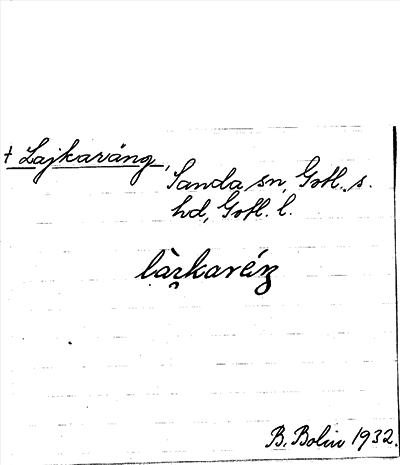 † Lajkaväng,
Sanda sn, Gotl. s.
hd, Gotl. l.
B. Bolin 1932.